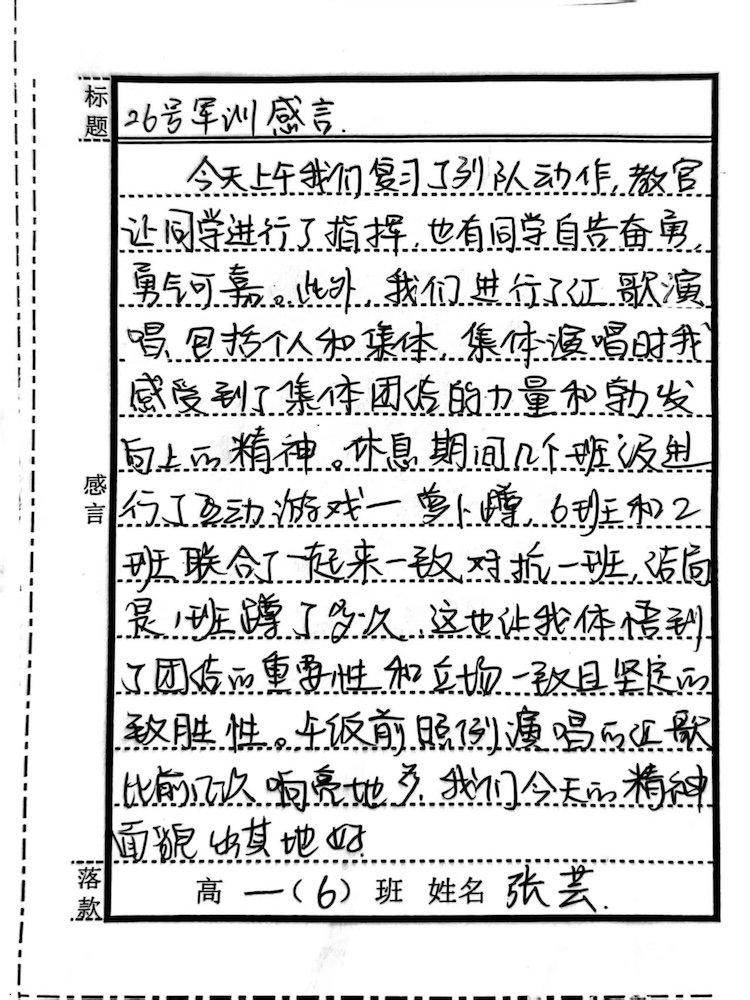 标题
26号军训感言.
今天上午我们复习了列队动作,教官
让同学进行了指挥,也有同学自告奋勇,
勇气可嘉。此外,我们进行了红歌演
唱,包括个人和集体,集体演唱时我
感受到了集体团结的力量和勃发
向上的精神。休息期间几个班级进
行了互动游戏一萝卜蹲,6班和2
班联合了一起来一致对抗一班,结局
是1班蹲了多次,这也让我体悟到
了团结的重要性和立场一致且坚定的
致胜性。午饭前照例演唱的红歌
比前几次响亮地多,我们今天的精神
面貌出其地好.
感言
落款
高一(6)班 姓名 张芸.